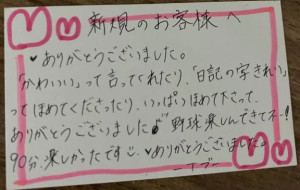 新規のお客様へ
♥ありがとうございました。
「かわいい」って言ってくれたり、「日記の字きれい」
ってほめてくださったり、いっぱいほめて下さって、
ありがとうございました 野球楽しんできてネー!
90分、楽しかったです ♥ありがとうございました。